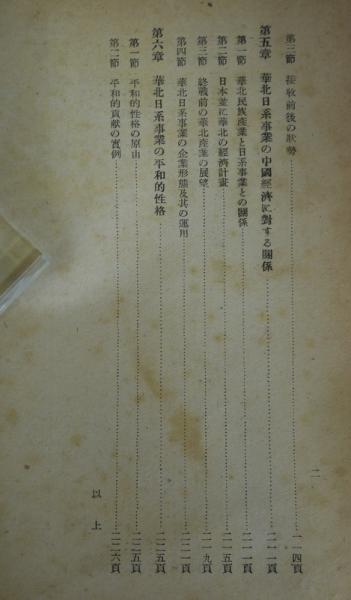 第三節 接收前後の狀勢……一一四頁
第五章 華北日系事業の中國經濟に對する關係……二一一頁
第一節 華北民族產業と日系事業との關係……二一一頁
第二節 日本並に華北の經濟計畫……二一五頁
第三節 終戰前の華北產業の展望……二一九頁
第四節 華北日系事業の企業形態及其の運用……二二一頁
第六章 華北日系事業の平和的性格……二二五頁
第一節 平和的性格の原由……二二五頁
第二節 平和的貢獻の實例……二二六頁
以上
二